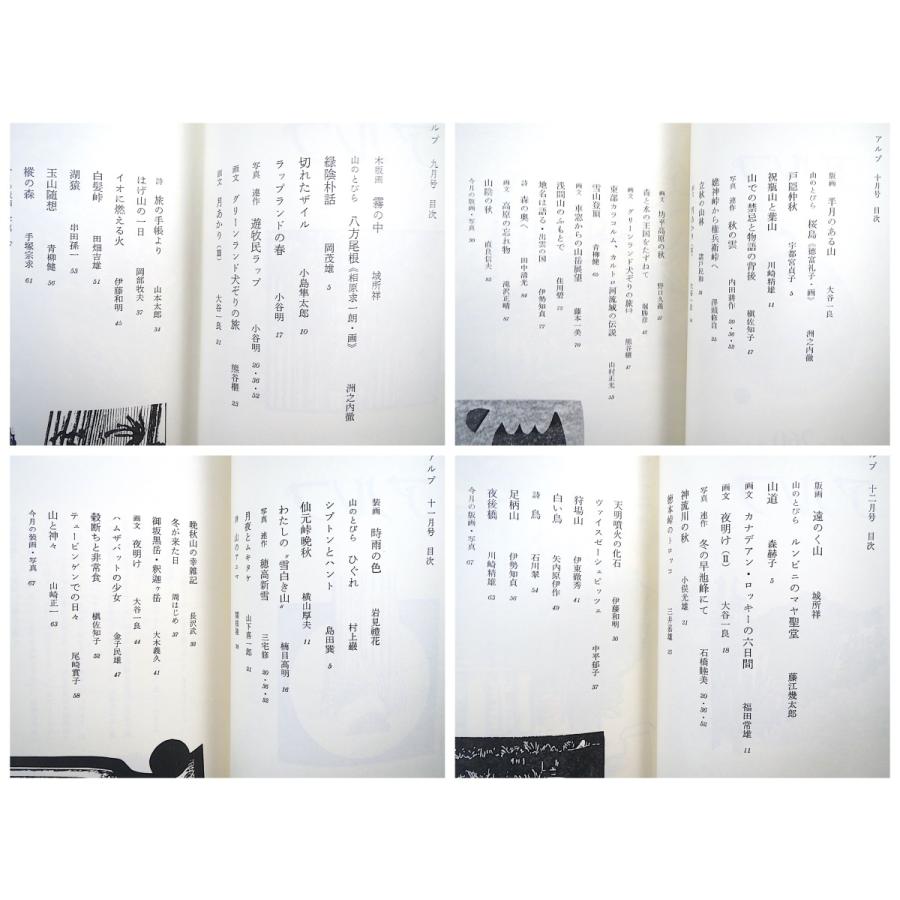 アルプ 九月号 目次
木版画 霧の中 城所祥
山のとびら 八方尾根《相原求一朗・画》 洲之内徹
緑陰朴話 岡茂雄 5
切れたザイル 小島隼太郎 10
ラップランドの春 小谷明 17
写真 連作 遊牧民ラップ 小谷明 20・36・52
画文 グリーンランド犬ぞりの旅 熊谷榧 23
画文 月あかり(Ⅲ) 大谷一良 31
詩 旅の手帳より 山本太郎 34
はげ山の一日 岡部牧夫 37
イオに燃える火 伊藤和明 45
白髪峠 田畑吉雄 51
湖猿 串田孫一 55
玉山随想 青柳健 56
樅の森 手塚宗求 61
アルプ 十月号 目次
版画 半月のある山 大谷一良
山のとびら 桜島《徳富礼子・画》 洲之内徹
戸隠仲秋 宇都宮貞子 5
祝瓶山と葉山 川崎精雄 11
山での禁忌と物語の背後 槇佐知子 17
写真 連作 秋の雲 内田耕作 20・36・52
嫦神峠から権兵衛峠へ 澤頭修自 25
立秋の山林 諸戸民和
青と氷の王国をたずねて
画文 坊平高原の秋 野口久義
画文 グリーンランド犬ぞりの旅 熊谷榧 47
東部カラコルム、カルトロ河流域の伝説 山村正光 55
雪山登頂 青柳健 65
画文 車窓からの山岳展望 藤本一美 70
浅間山のふもとで 住川碧 72
地名は語る・出雲の国 伊勢知貞 77
詩 森の奥へ 田中清光 84
画文 高原の忘れ物 滝沢正晴 87
山陰の秋 直良信夫
今月の版画・写真 90
アルプ 十一月号 目次
装画 時雨の色 岩見禮花
山のとびら ひぐれ 村上巌
シプトンとハント 島田巽 5
仙元峠晩秋 横山厚夫 11
わたしの“雪白き山” 楠目高明 16
写真 連作 穂高新雪 三宅修 20・36・52
月夜とムギタケ 山下喜一郎 21
詩 山のアニマ
晩秋山の幸雑記 長沢武 33
冬が来た日 周はじめ 37
御坂黒岳・釈迦ヶ岳 大木義久 41
画文 夜明け 大谷一良 44
ハムザバットの少女 金子民雄 47
穀断ちと非常食 槇佐知子 52
テュービンゲンでの日々 尾崎實子 58
山と神々 山崎正一 63
今月の装画・写真 67
アルプ 十二月号 目次
版画 遠のく山 城所祥
山のとびら ルンビニのマヤ聖堂 藤江幾太郎
山道 森赫子 5
画文 カナデアン・ロッキーの六日間 福田常雄 11
画文 夜明け(Ⅱ) 大谷一良 18
写真 連作 冬の早池峰にて 石橋睦美 20・36・52
神流川の秋 小俣光雄 21
徳本峠のトロッコ 三井嘉雄 25
天明噴火の化石 伊藤和明 30
ヴァイスゼーシュピッツェ 中平郁子 37
狩場山 伊東徹秀 41
白い鳥 矢内原伊作 49
詩 鳥 石川翠 54
足柄山 伊勢知貞 56
夜後橋 川崎精雄 63
今月の版画・写真 67